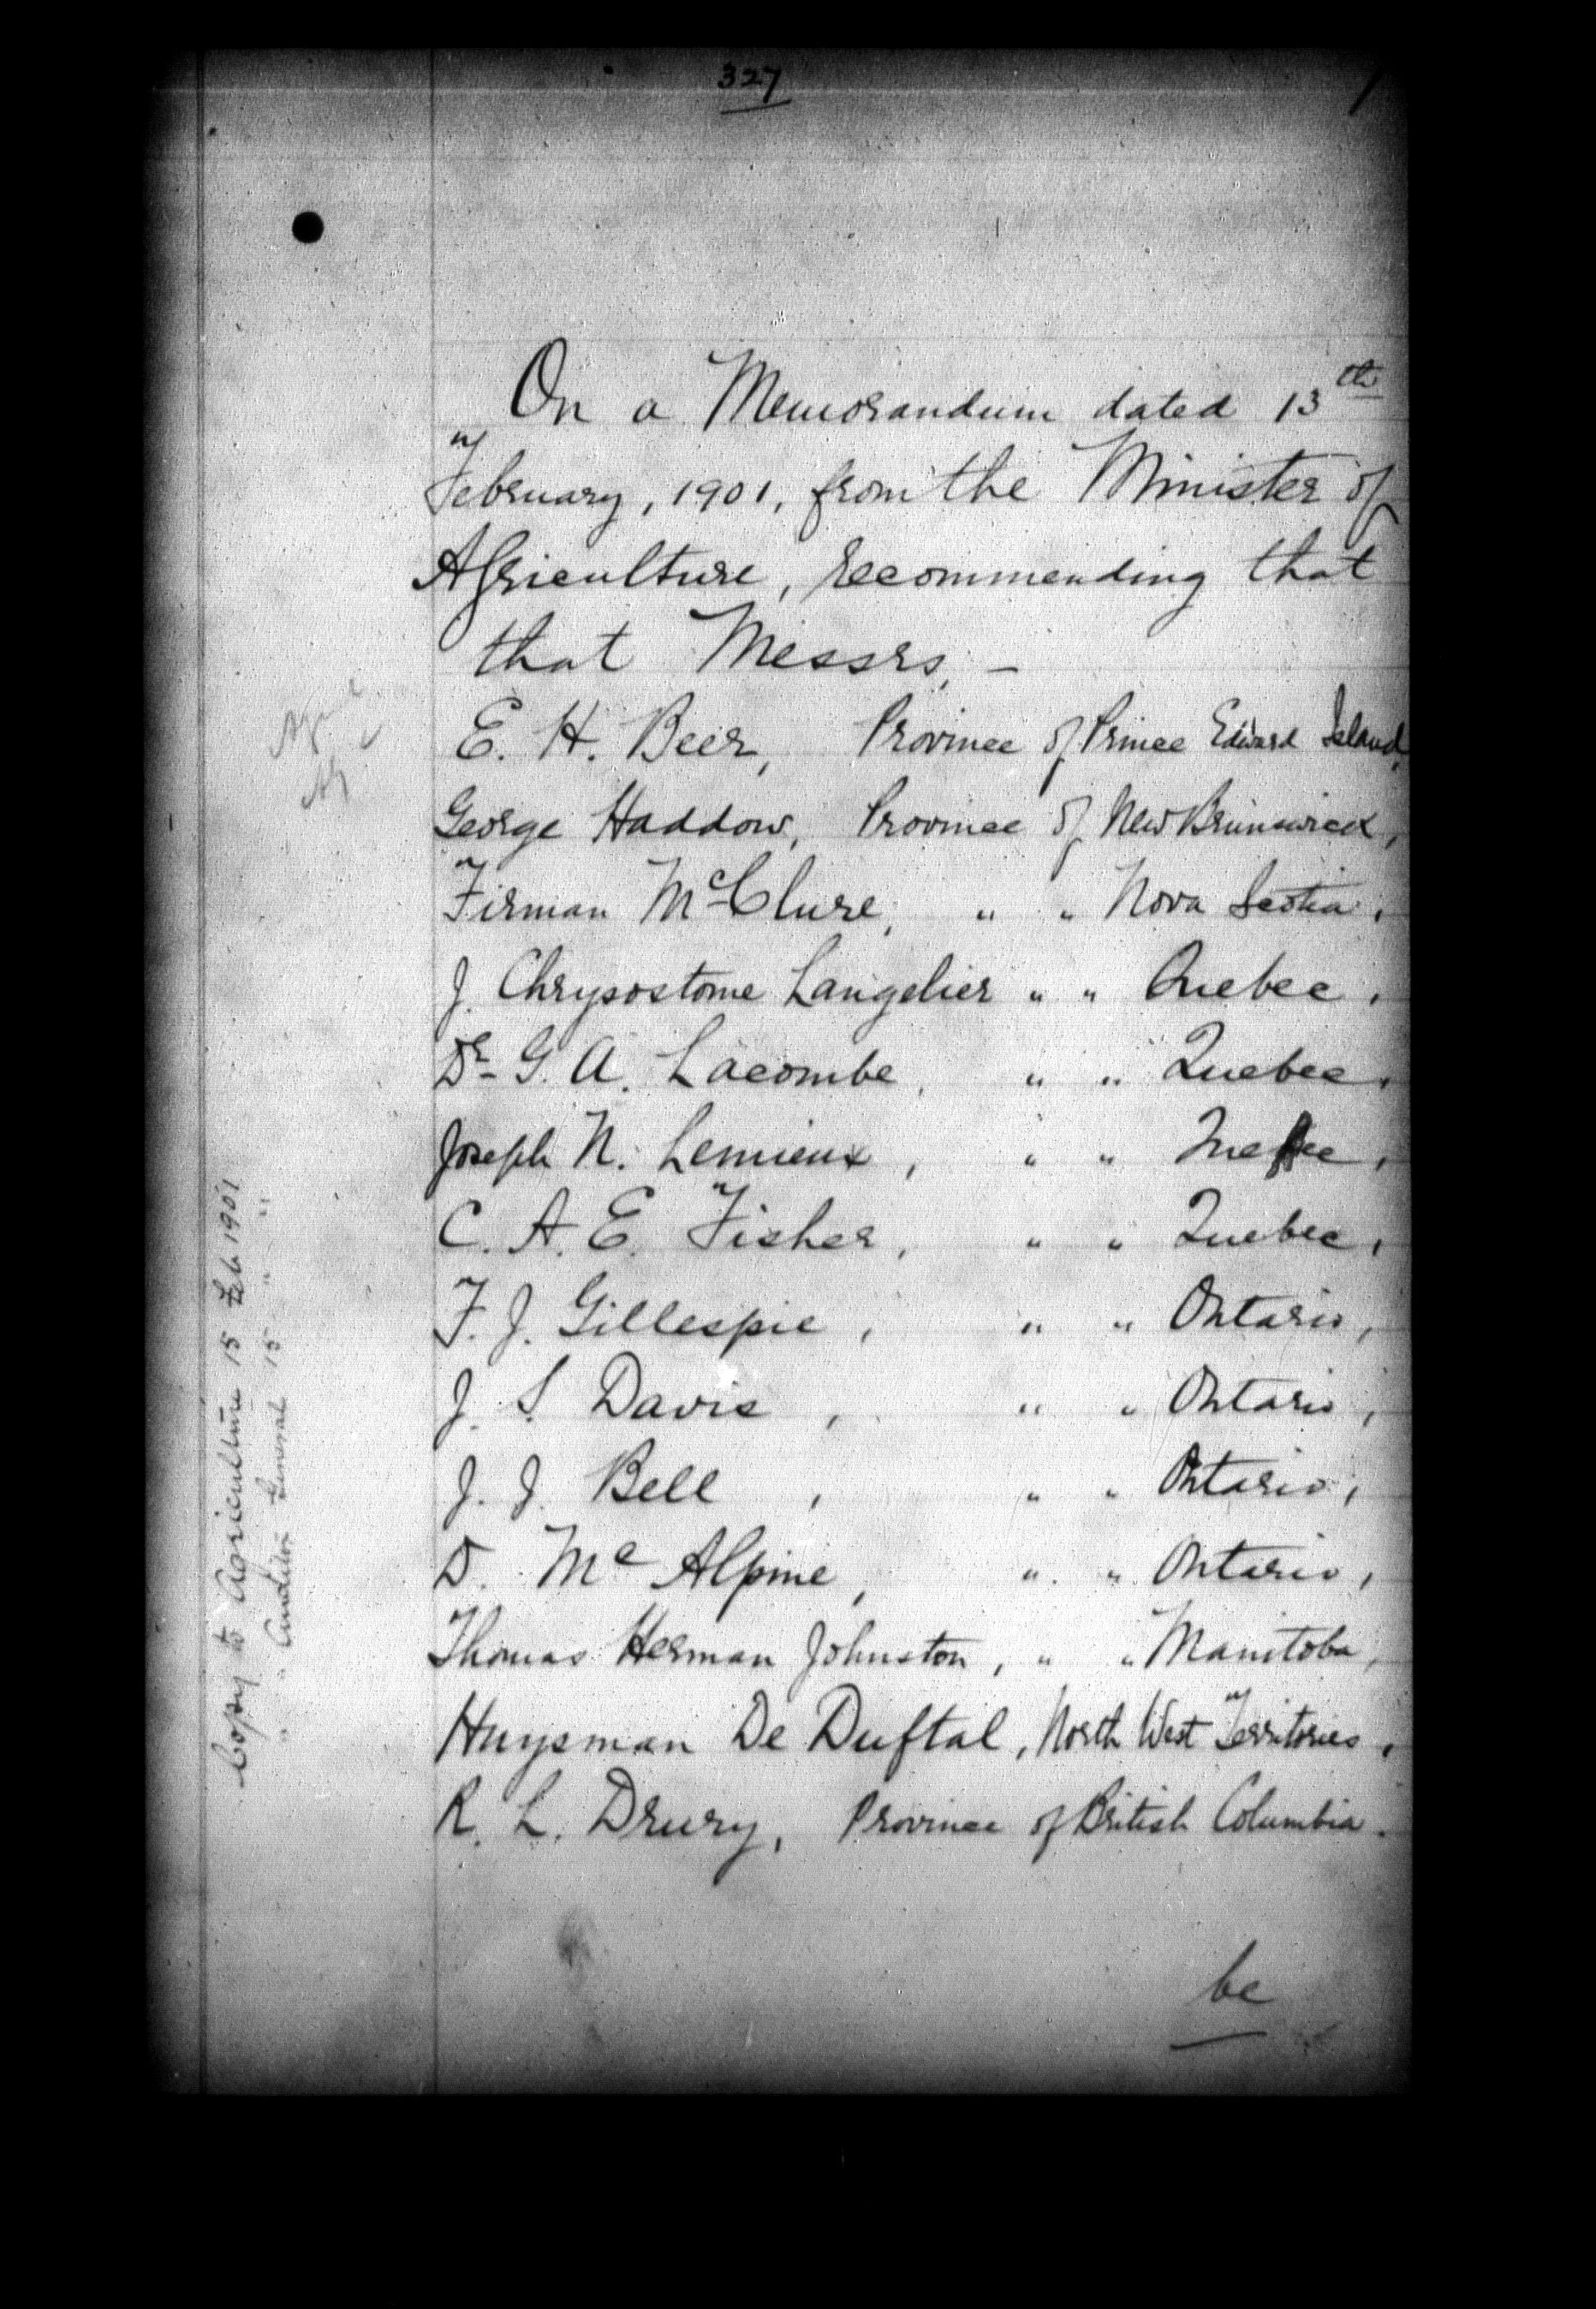 327
On a Memorandum dated 13th
February, 1901, from the Minister of
Agriculture, recommending that
that Messrs, –
E. H. Beer, Province of Prince Edward Island,
George Haddow, Province of New Brunswick,
Firman McClure, " " Nova Scotia,
J. Chrysostome Langelier " " Quebec,
Dr G. A. Lacombe, " " Quebec,
Joseph N. Lemieux, " " Quebec,
C. A. E. Fisher, " " Quebec,
F. J. Gillespie, " " Ontario,
J. S. Davis, " " Ontario,
J. J. Bell, " " Ontario,
D. Mc Alpine, " " Ontario,
Thomas Herman Johnston, " " Manitoba,
Huysman De Duftal, North West Territories,
R. L. Drury, Province of British Columbia.
be
Copy to Agriculture 15 Feb 1901
" " Auditor General 15 " "